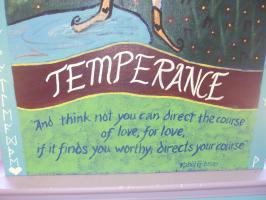 TEMPERANCE
And think not you can direct the course
of love, for love,
if it finds you worthy, directs your course